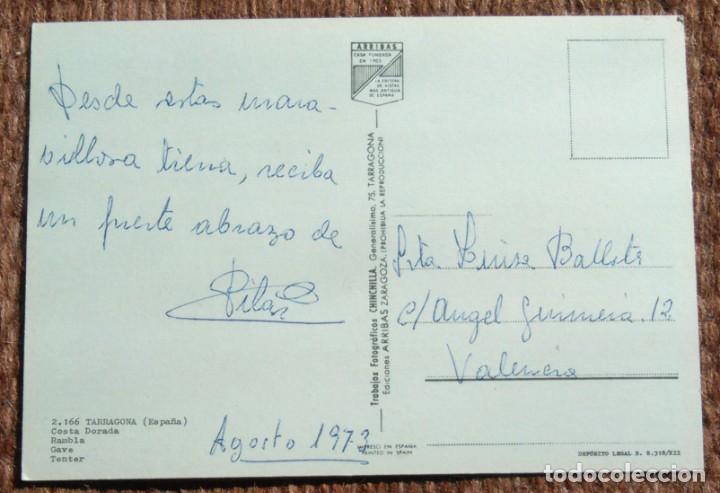 Desde estas mara-
villosa tierra, reciba
un fuerte abrazo de
Pilar
2.166 TARRAGONA (España)
Costa Dorada
Rambla
Gave
Tenter
Agosto 1973
ARRIBAS
CASA FUNDADA
EN 1903
LA EDITORA
DE VISTAS
MAS ANTIGUA
DE ESPAÑA
Trabajos Fotográficos CHINCHILLA. Generalísimo, 75. TARRAGONA
Ediciones ARRIBAS ZARAGOZA. (PROHIBIDA LA REPRODUCCION)
IMPRESO EN ESPAÑA
PRINTED IN SPAIN
Srta Luisa
c/ Angel Guimerá. 12
Valencia
DEPÓSITO LEGAL
todocoleccion